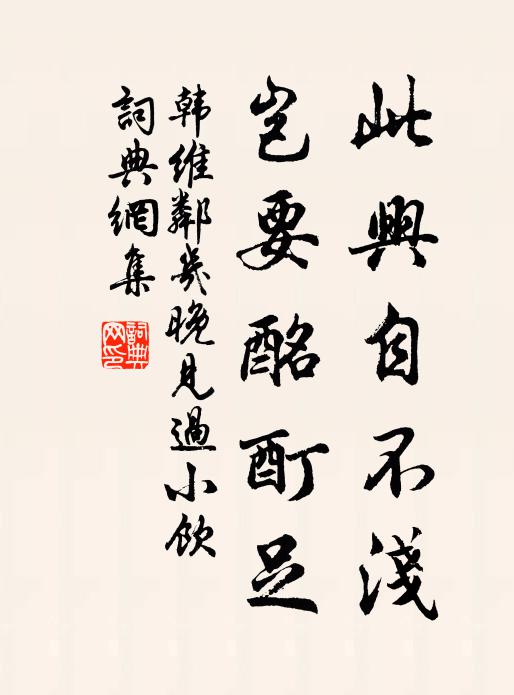 此興自不淺
豈要酩酊足
韩維鄰幾晚見過小飲
詞典網集
詞典网印